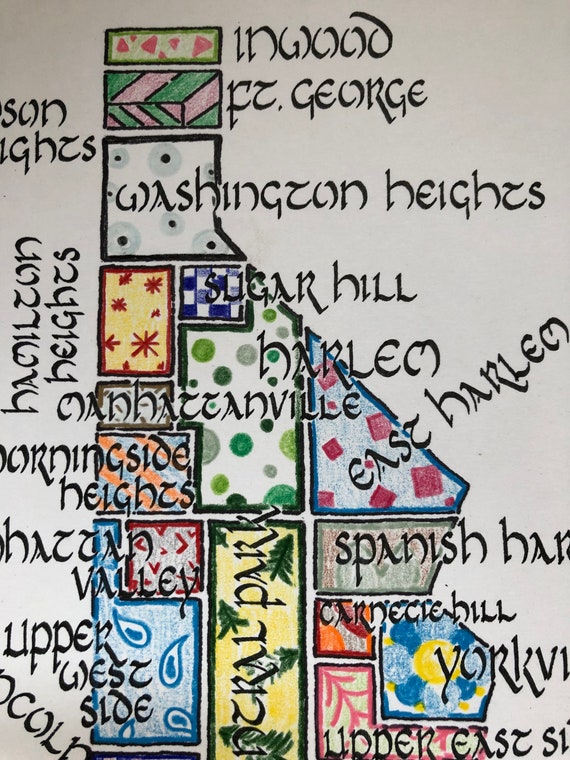 INWOOD
FT. GEORGE
DSON
IGHTS
WASHINGTON HEIGHTS
HAMILTON
HEIGHTS
SUGAR HILL
HARLEM
EAST HARLEM
MANHATTANVILLE
ORNINGSIDE
HEIGHTS
HATTAN
VALLEY
TRAL PARK
SPANISH HAR
CARNEGIE HILL
UPPER
WEST
SIDE
YORKVI
UPPER EAST SI